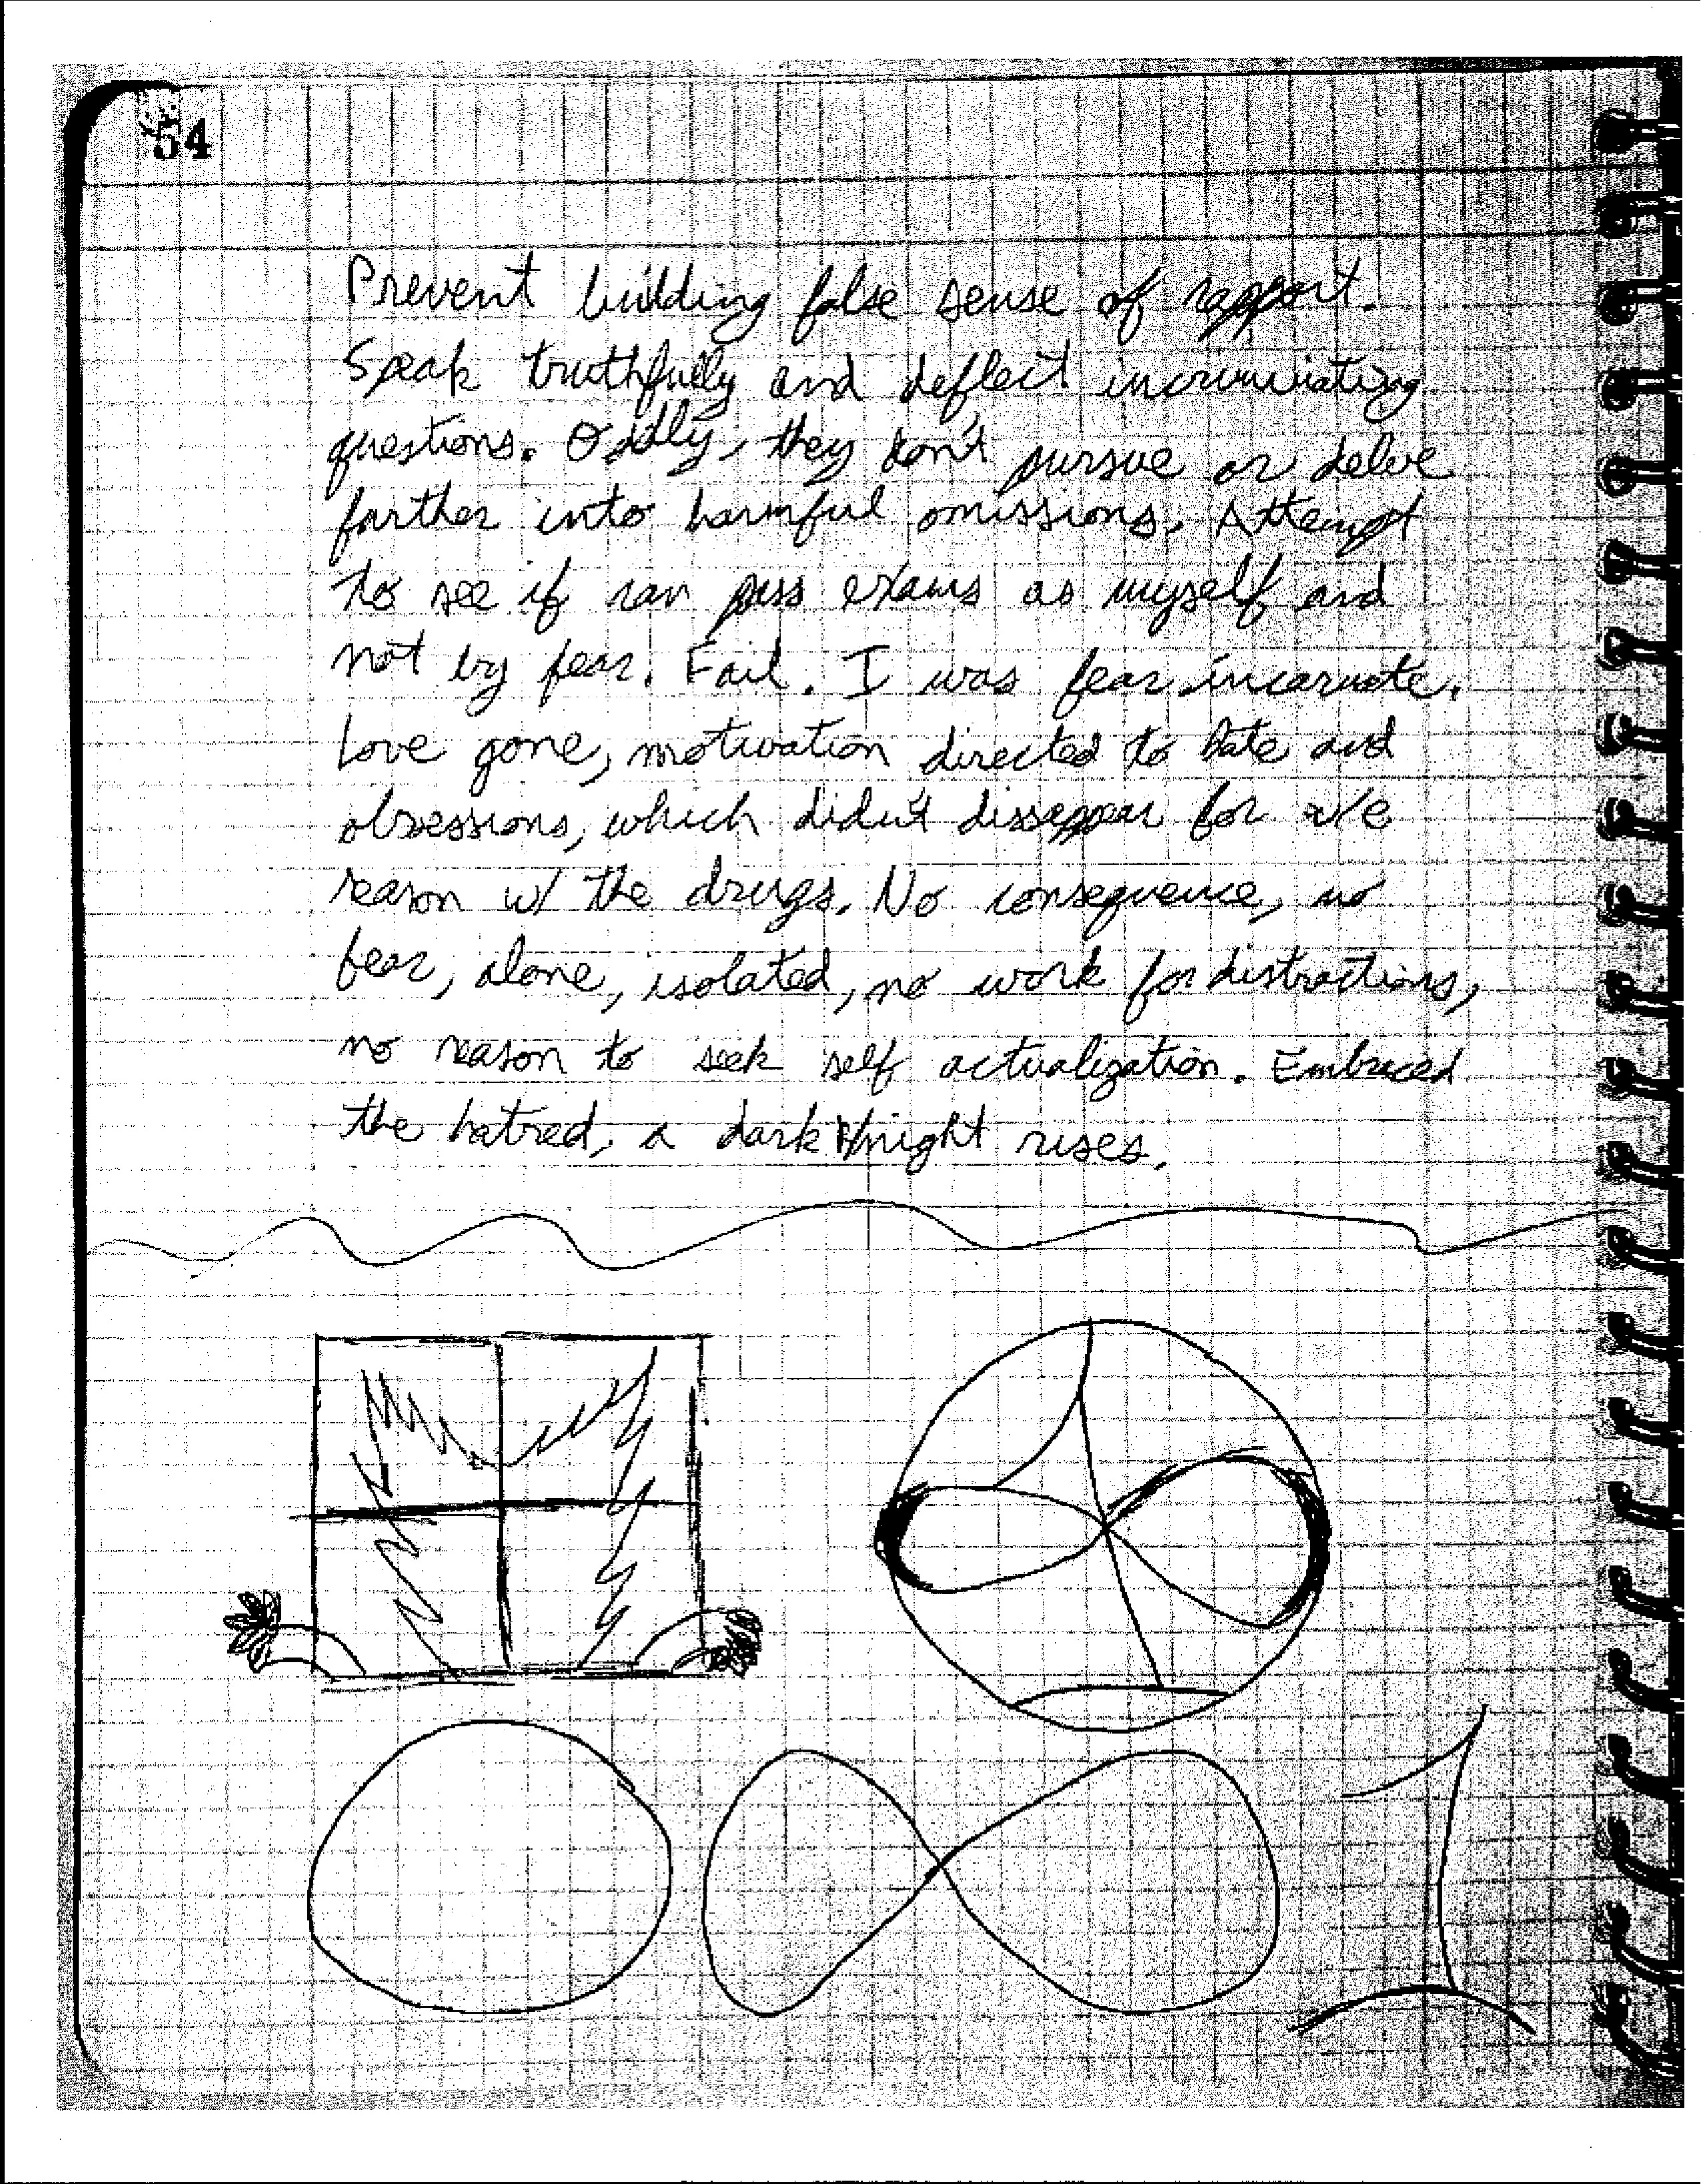 54
Prevent building false sense of rapport.
Speak truthfully and deflect incriminating
questions. Oddly, they don't pursue or delve
farther into harmful omissions. Attempt
to see if can pass exams as myself and
not by fear. Fail. I was fear incarnate.
Love gone, motivation directed to hate and
obsessions, which didn't dissappear for
reason w/ the drugs. No consequence, no
fear, alone, isolated, no work for distractions,
no reason to seek self actualization. Embraced
the hatred, a dark k/night rises.